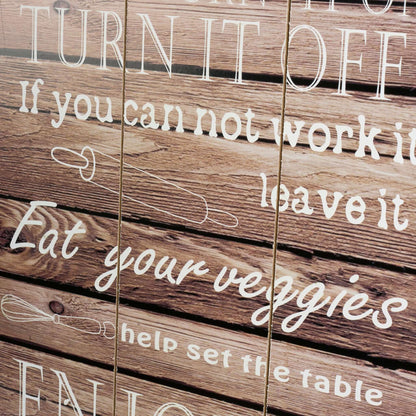 TURN IT OFF
If you can not work it
leave it
Eat your veggies
help set the table
ENJO